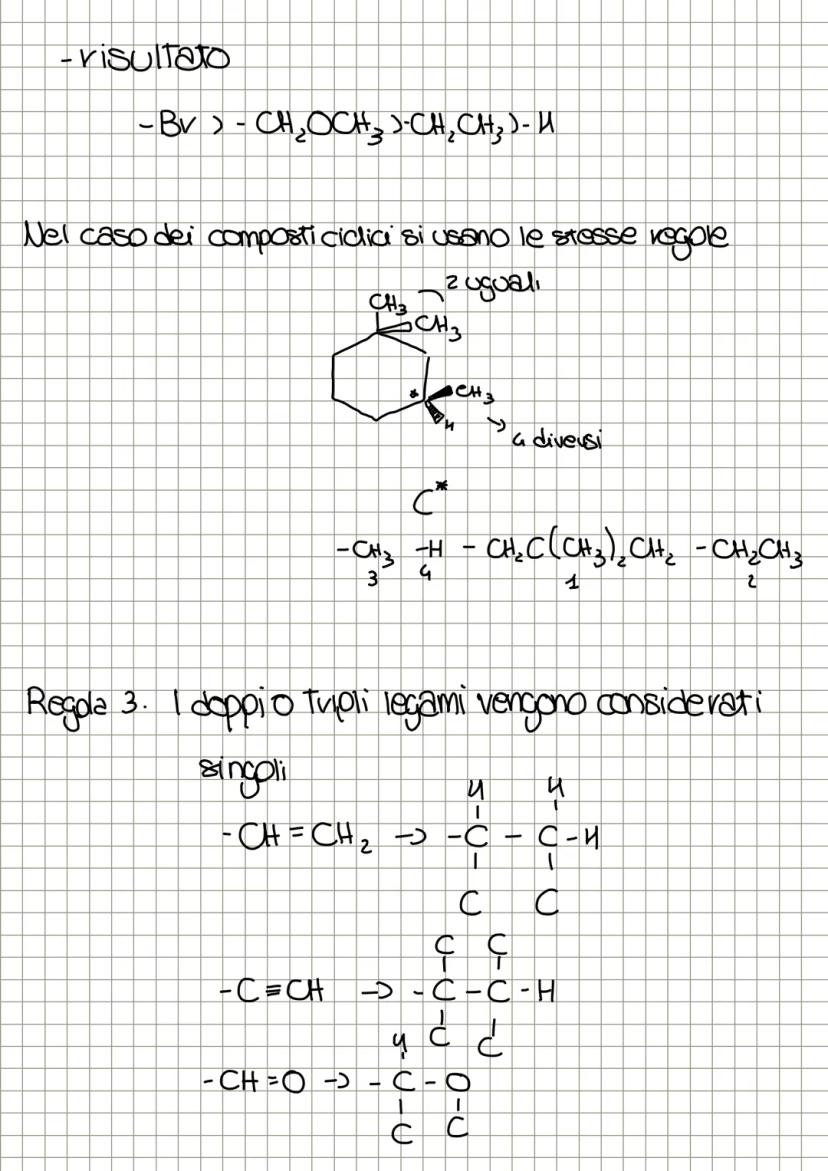 -risultato
-Br > -CH₂OCH₃ > -CH₂CH₃ > -H
Nel caso dei composti ciclici si usano le stesse regole
2 uguali
CH₃
CH₃
* CH₃
H
→ 4 diversi
C*
-CH₃ -H -CH₂C(CH₃)₂CH₂ -CH₂CH₃
3 4 1 2
Regola 3. I doppi o tripli legami vengono considerati
singoli
H H
-CH=CH₂ → -C - C-H
C C
C C
-C≡CH → -C-C-H
C C
H
-CH=O → -C-O
C C